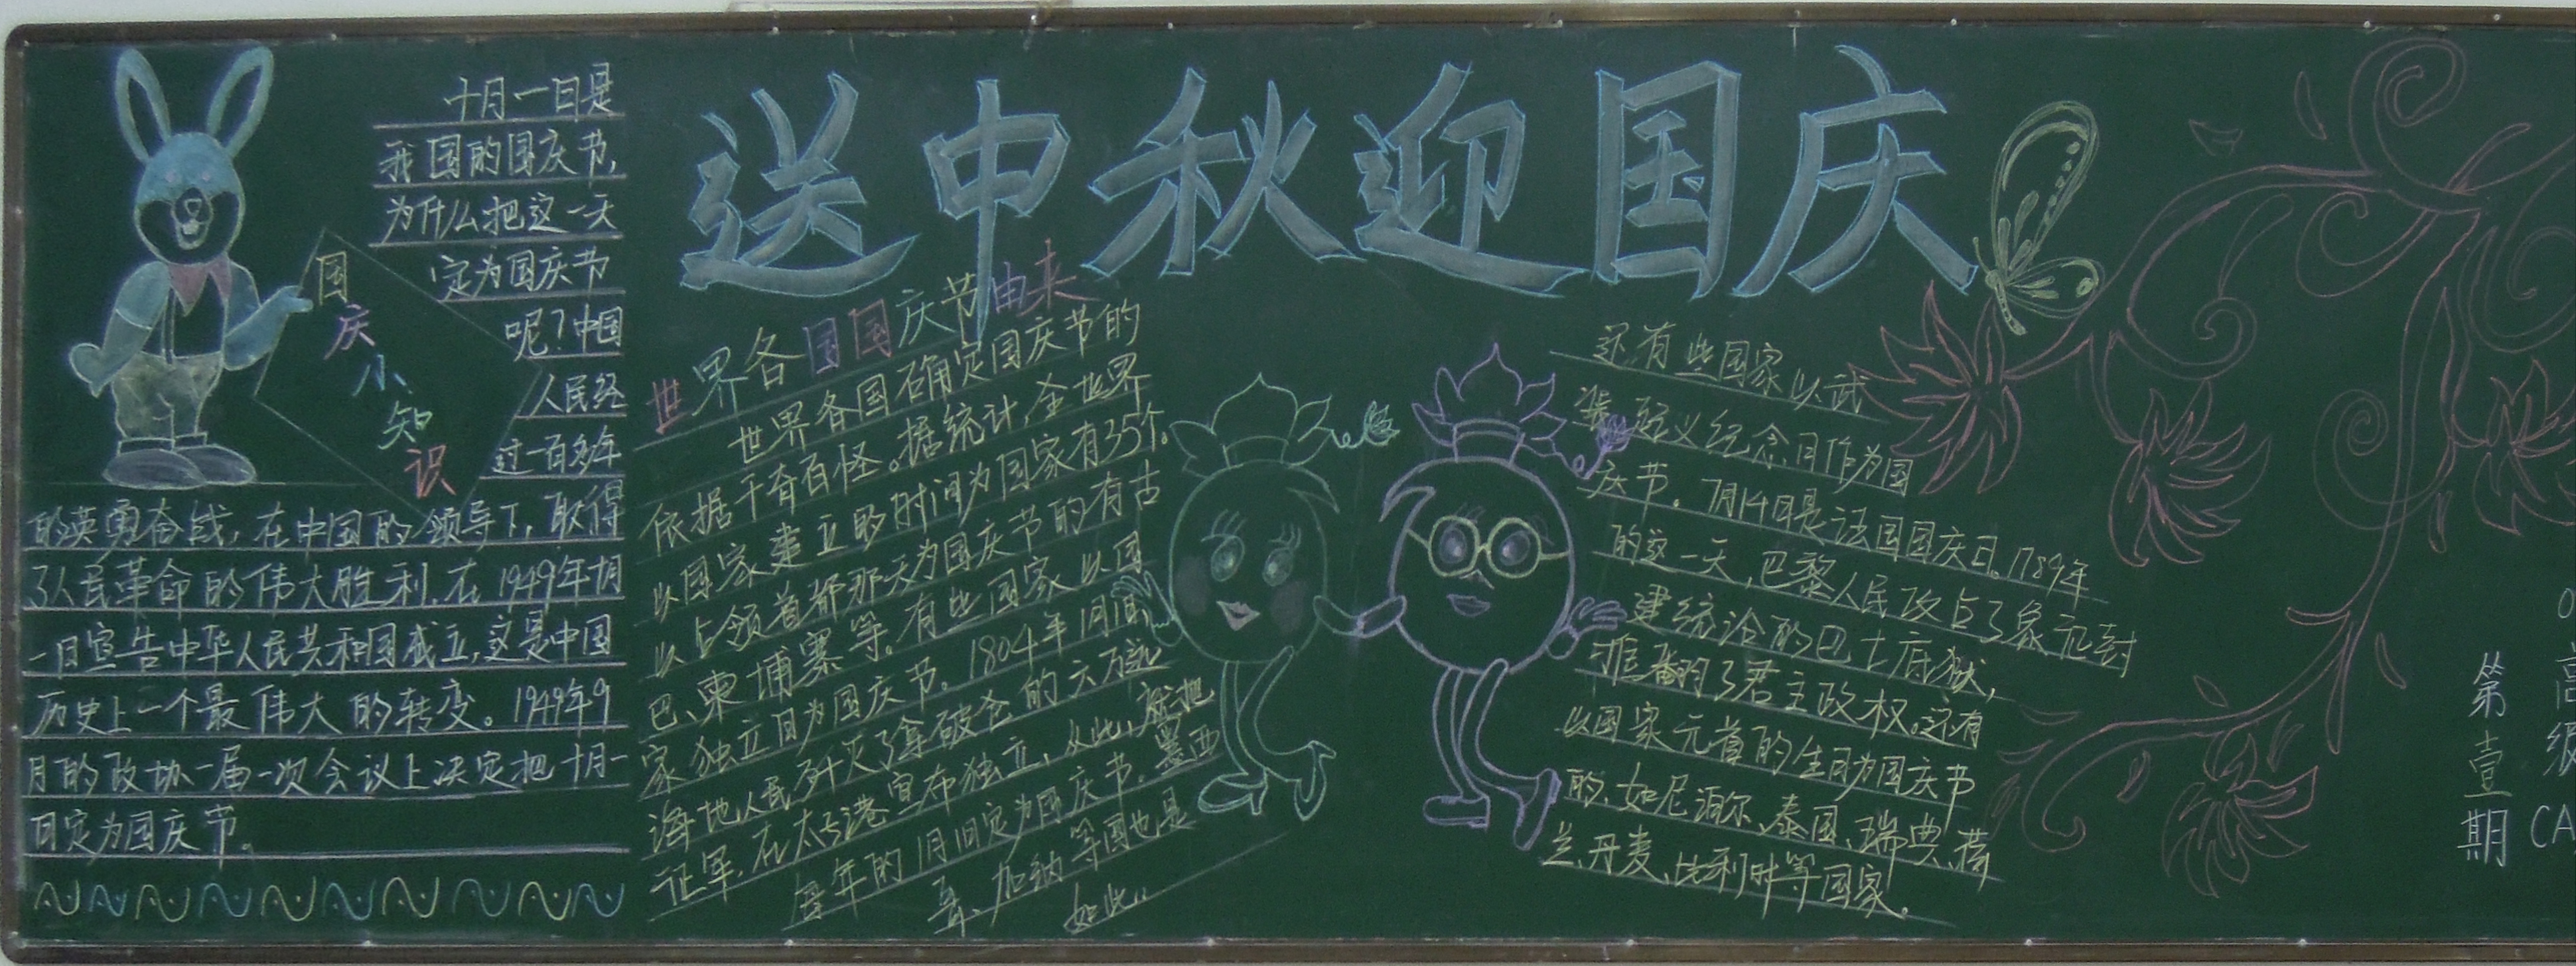 送中秋迎国庆
国庆小知识
十月一日是
我国的国庆节,
为什么把这一天
定为国庆节
呢?中国
人民经
过一百多年
的英勇奋战,在中国的领导下,取得
了人民革命的伟大胜利.在1949年十月
一日宣告中华人民共和国成立,这是中国
历史上一个最伟大的转变。1949年9
月的政协一届一次会议上决定把十月一
日定为国庆节。
世界各国国庆节由来
世界各国确定国庆节的
依据千奇百怪。据统计,全世界
以国家建立的时间为国家有35个。
以占领首都那天为国庆节的有古
巴、柬埔寨等。有些国家以国
家独立日为国庆节。1804年1月1日
海地人民歼灭了拿破仑的六万远
征军,在太子港宣布独立,从此,就把
每年的1月1日定为国庆节。墨西
哥、加纳等国也是
如此..
还有些国家以武
装起义纪念日作为国
庆节。7月14日是法国国庆日。1789年
的这一天,巴黎人民攻占了象征封
建统治的巴士底狱,
推翻了君主政权。还有
以国家元首的生日为国庆节
的、如尼泊尔、泰国、瑞典、荷
兰、丹麦、比利时等国家。
第壹期
高级
CA